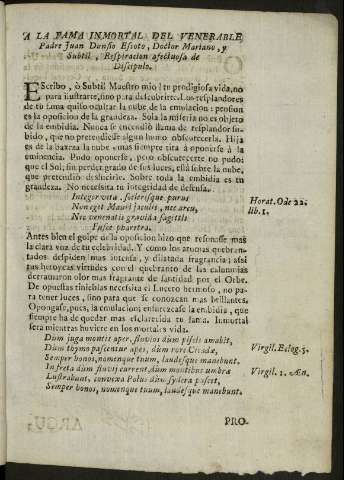 A LA FAMA INMORTAL DEL VENERABLE
Padre Juan Dunsio Escoto, Doctor Mariano, y
Subtil, Respiracion afectuosa de
Discipulo.
EScribo, ò Subtil Maestro mio! tu prodigiosa vida, no
para ilustrarte, sino para descubrirte. Los resplandores
de tu fama quiso ocultar la nube de la emulacion: pension
es la oposicion de la grandeza. Sola la miseria no es objeto
de la embidia. Nunca se encendiò llama de resplandor su-
bido, que no pretendiesse algun humo obscurecerla. Hija
es de la baxeza la nube, mas siempre tira à oponerse à la
eminencia. Pudo oponerse, pero obscurecerte no pudo:
que el Sol, sin perder grado de sus luces, està sobre la nube,
que pretendiò deslucirle. Sobre toda la embidia es tu
grandeza. No necesita tu integridad de defensa.
Integer vitæ, scelerisque purus
Non eget Mauri jaculis, nec arcu,
Nec venenatis gravida sagittis
Fusce pharetra.
Horat. Ode 22.
lib. 1.
Antes bien el golpe de la oposicion hizo que resonasse mas
la clara voz de tu celebridad. Y como los aromas quebran-
tados despiden mas intensa, y dilatada fragrancia; assi
tus heroycas virtudes con el quebranto de las calumnias
derramaron olor mas fragrante de santidad por el Orbe.
De opuestas tinieblas necessita el Lucero hermoso, no pa-
ra tener luces, sino para que se conozcan mas brillantes.
Opongase, pues, la emulacion; enfurezcase la embidia, que
siempre ha de quedar mas esclarecida tu fama. Inmortal
serà mientras huviere en los mortales vida.
Dum juga montis aper, fluvios dùm piscis amabit,
Dum thymo pascentur apes, dùm rore Cicadæ,
Semper honos, nomenque tuum, laudesque manebunt.
Virgil. Eclog. 5.
In freta dùm fluvij current, dùm montibus umbræ
Lustrabunt, convexa Polus dùm sydera pascet,
Semper honos, nomenque tuum, laudesque manebunt.
Virgil. 1. Æn.
PRO-